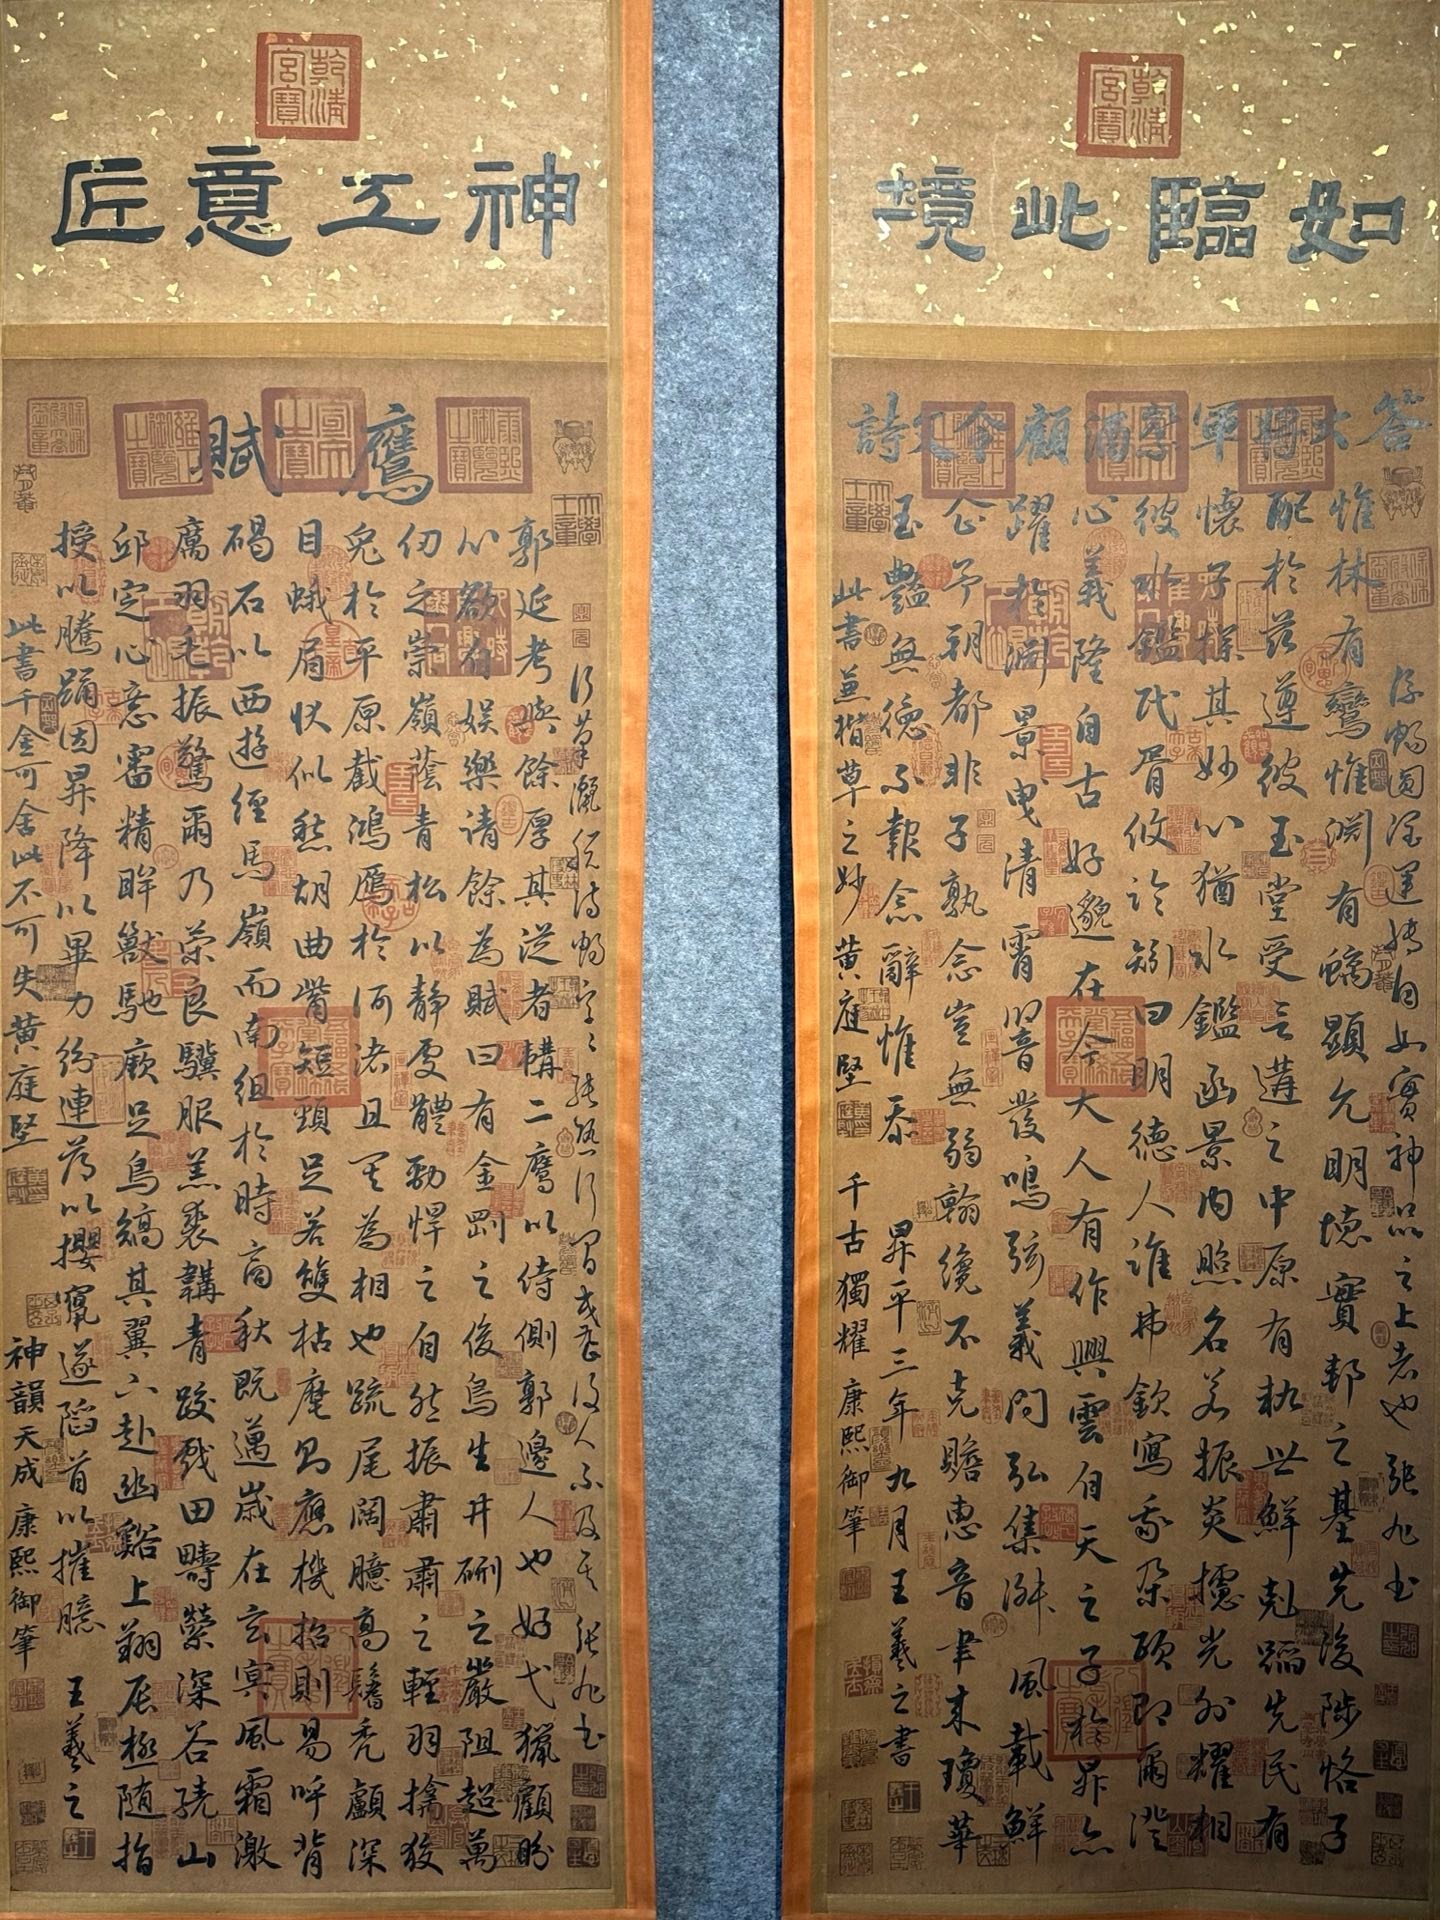 乾清宮寶
如臨此境
答大將軍祭酒顧令文詩
深暢圓潤運轉自如實神品之上者也張旭書
惟林有鸞惟淵有螭顯允明德實邦之基先後陟恪子
配於茲遵彼玉堂受言遘之中原有杭世鮮剋蹈先民有
懷子探其妙心猶水鑑函景內照名若振炎攄光外耀相
彼水鑑民胥攸詮矧曰明德人誰弗欽寫我朶頤即爾澄
心義隆自古好邈在今大人有作興雲自天之子於昇亦
躍於淵景曳清霄響發鳴絃義問弘集淋風載鮮
企予朝都非子孰念豈無弱翰纔不克贍惠音聿來瓊華
玉艷無德不報念辭惟忝 昇平三年九月王羲之書
此書兼楷草之妙黃庭堅 千古獨耀 康熙御筆
乾清宮寶
神工意匠
鷹賦
行草灑脫詩暢後人不及 張旭書
郭延考與餘厚其從者韝二鷹以侍側郭邊人也好弋獵顧盼
心欲有娛樂請餘為賦曰有金剛之俊鳥生井硎之巖阻超萬
仞之崇嶺蔭青松以靜處體勁悍之自然振肅肅之輕羽擒狡
兔於平原截鴻鴈於河渚且其為相也疏尾闊臆高鬐禿顱深
目蛾眉狀似愁胡曲觜短頸足若雙枯麾則應機招則易呼背
碣石以西遊經馬嶺而南組於時商秋既邁歲在玄冥風霜激
厲羽毛振驚爾乃策良驥服羔裘韝青骹戲田疇縈深谷繞山
邱定心意審精眸獸馳厥足鳥縞其翼下赴幽谿上翔辰極隨指
授以騰踊因昇降以畢力紛連為以攖遂蹈首以摧臆 王羲之
此書千金可舍此不可失黃庭堅 神韻天成康熙御筆